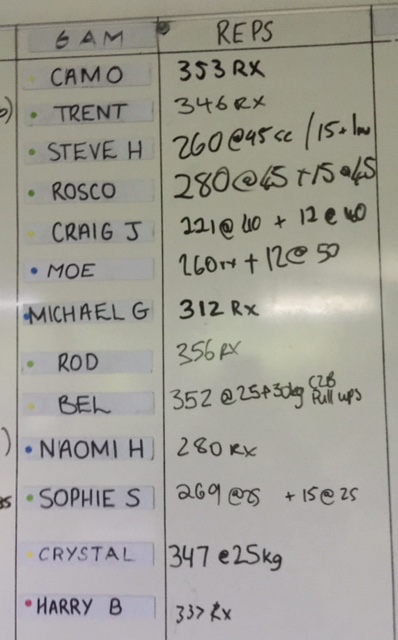 6 AM REPS
CAMO 353 RX
TRENT 346 RX
STEVE H 260 @45 / 15+
ROSCO 280 @45 +15 @45
CRAIG J 221 @ 40 + 12 @ 40
MOE 260 rx + 12 @ 50
MICHAEL G 312 Rx
ROD 356 RX
BEL 352 @ 25+30kg C2B Pull ups
NAOMI H 280 RX
SOPHIE S 269 @25 + 15 @ 25
CRYSTAL 347 @ 25kg
HARRY B 337 Rx